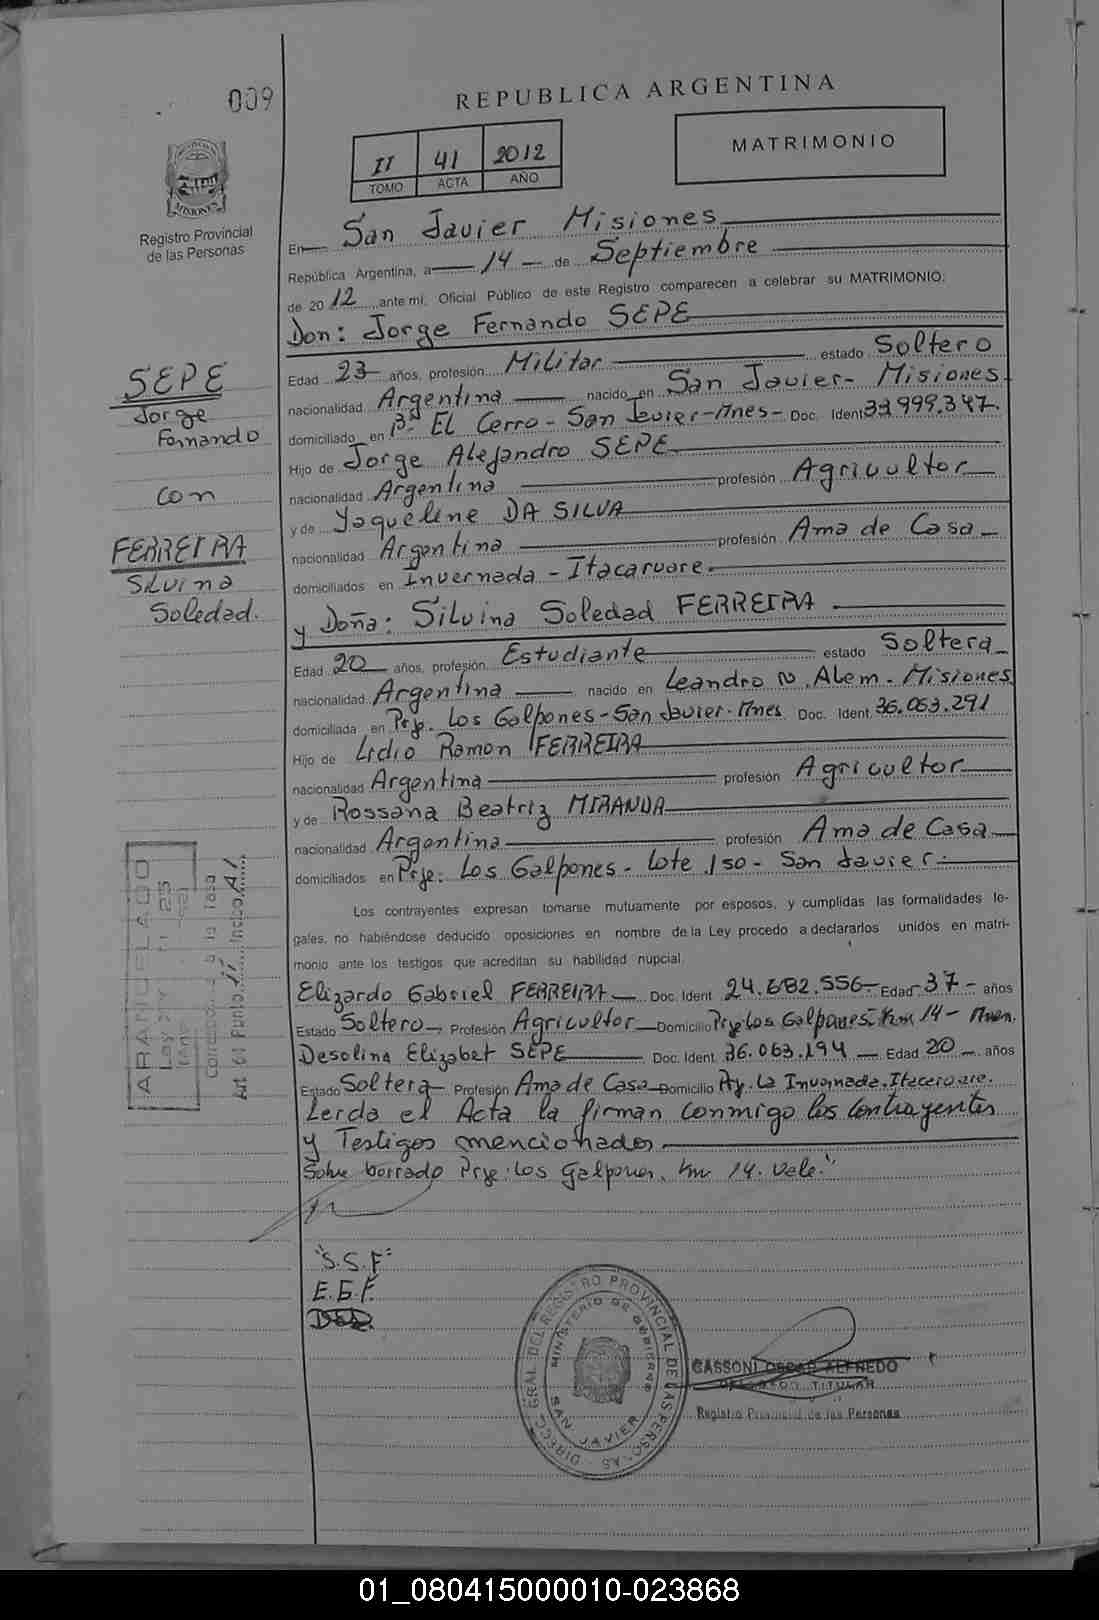 009
REPUBLICA ARGENTINA
II 41 2012
TOMO ACTA AÑO
MATRIMONIO
MISIONES
Registro Provincial
de las Personas
En San Javier Misiones
República Argentina, a 14 de Septiembre
de 2012 ante mí, Oficial Público de este Registro comparecen a celebrar su MATRIMONIO:
Don: Jorge Fernando SEPE
Edad 23 años, profesión Militar estado Soltero
nacionalidad Argentina nacido en San Javier - Misiones
domiciliado en Bº El Cerro - San Javier - Mnes - Doc. Ident 33.999.347.
Hijo de Jorge Alejandro SEPE
nacionalidad Argentina profesión Agricultor
y de Yaqueline DA SILVA
nacionalidad Argentina profesión Ama de Casa
domiciliados en Invernada - Itacaruare.
y Doña: Silvina Soledad FERREIRA
Edad 20 años, profesión Estudiante estado Soltera
nacionalidad Argentina nacido en Leandro N. Alem - Misiones
domiciliada en Prje. Los Galpones - San Javier - Mnes Doc. Ident. 36.063.291
Hijo de Lidio Ramon FERREIRA
nacionalidad Argentina profesión Agricultor
y de Rossana Beatriz MIRANDA
nacionalidad Argentina profesión Ama de Casa
domiciliados en Prje: Los Galpones - Lote 150 - San Javier.
Los contrayentes expresan tomarse mutuamente por esposos, y cumplidas las formalidades le-
gales, no habiéndose deducido oposiciones en nombre de la Ley procedo a declararlos unidos en matri-
monio ante los testigos que acreditan su habilidad nupcial.
Elizardo Gabriel FERREIRA Doc. Ident. 24.682.556 Edad 37 años
Estado Soltero Profesión Agricultor Domicilio Prje Los Galpones Km 14 -
Desolina Elizabet SEPE Doc. Ident. 36.063.194 Edad 20 años
Estado Soltera Profesión Ama de Casa Domicilio La Invernada. Itacaruare.
Leida el Acta la firman conmigo los Contrayentes
y Testigos mencionados
Sobre borrado Prje: Los Galpones, Km 14. Vale."
SEPE
Jorge
Fernando
con
FERREIRA
Silvina
Soledad.
ARANCELADO
Ley
Corresponde a la Tasa
Art 61 Punto Inciso A1
"S.S.F"
E.G.F.
DIRECC. GRAL. DEL REGISTRO PROVINCIAL DE LAS PERSONAS
MINISTERIO DE GOBIERNO
SAN JAVIER
CASSONI OSCAR ALFREDO
DELEGADO TITULAR
Registro Provincial de las Personas
01_080415000010-023868